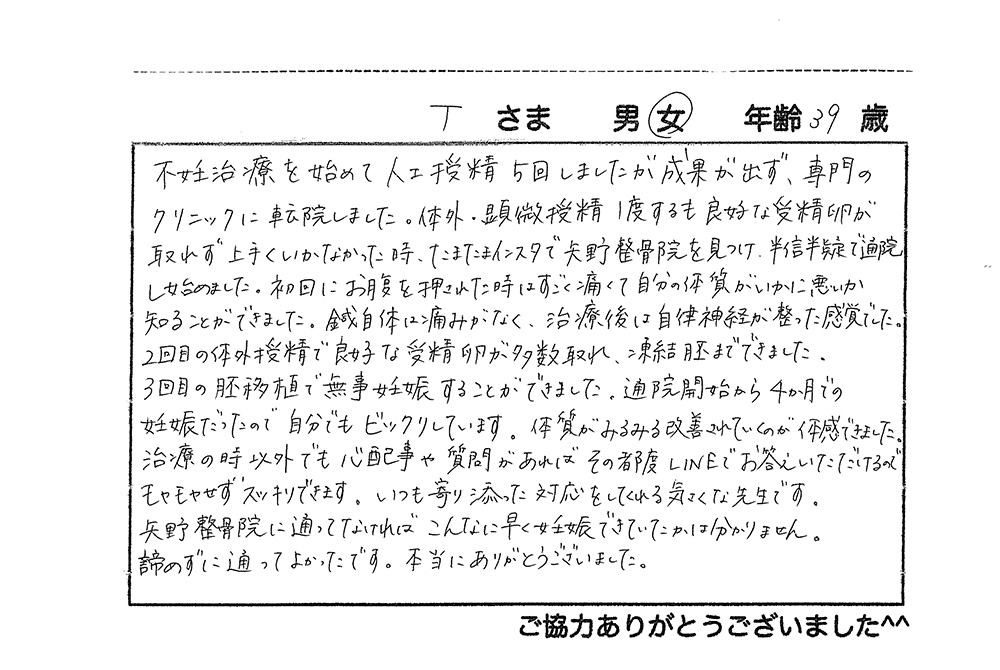 T さま 男 女 年齢 39 歳
不妊治療を始めて人工授精5回しましたが成果が出ず、専門の
クリニックに転院しました。体外・顕微授精1度するも良好な受精卵が
取れず上手くいかなかった時、たまたまインスタで矢野整骨院を見つけ、半信半疑で通院
し始めました。初回にお腹を押された時はすごく痛くて自分の体質がいかに悪いか
知ることができました。鍼自体は痛みがなく、治療後は自律神経が整った感覚でした。
2回目の体外授精で良好な受精卵が多数取れ、凍結胚までできました。
3回目の胚移植で無事妊娠することができました。通院開始から4か月での
妊娠だったので自分でもビックリしています。体質がみるみる改善されていくのが体感できました。
治療の時以外でも心配事や質問があればその都度LINEでお答えいただけるので
モヤモヤせずスッキリできます。いつも寄り添った対応をしてくれる気さくな先生です。
矢野整骨院に通ってなければこんなに早く妊娠できていたかは分かりません。
諦めずに通ってよかったです。本当にありがとうございました。
ご協力ありがとうございました^^